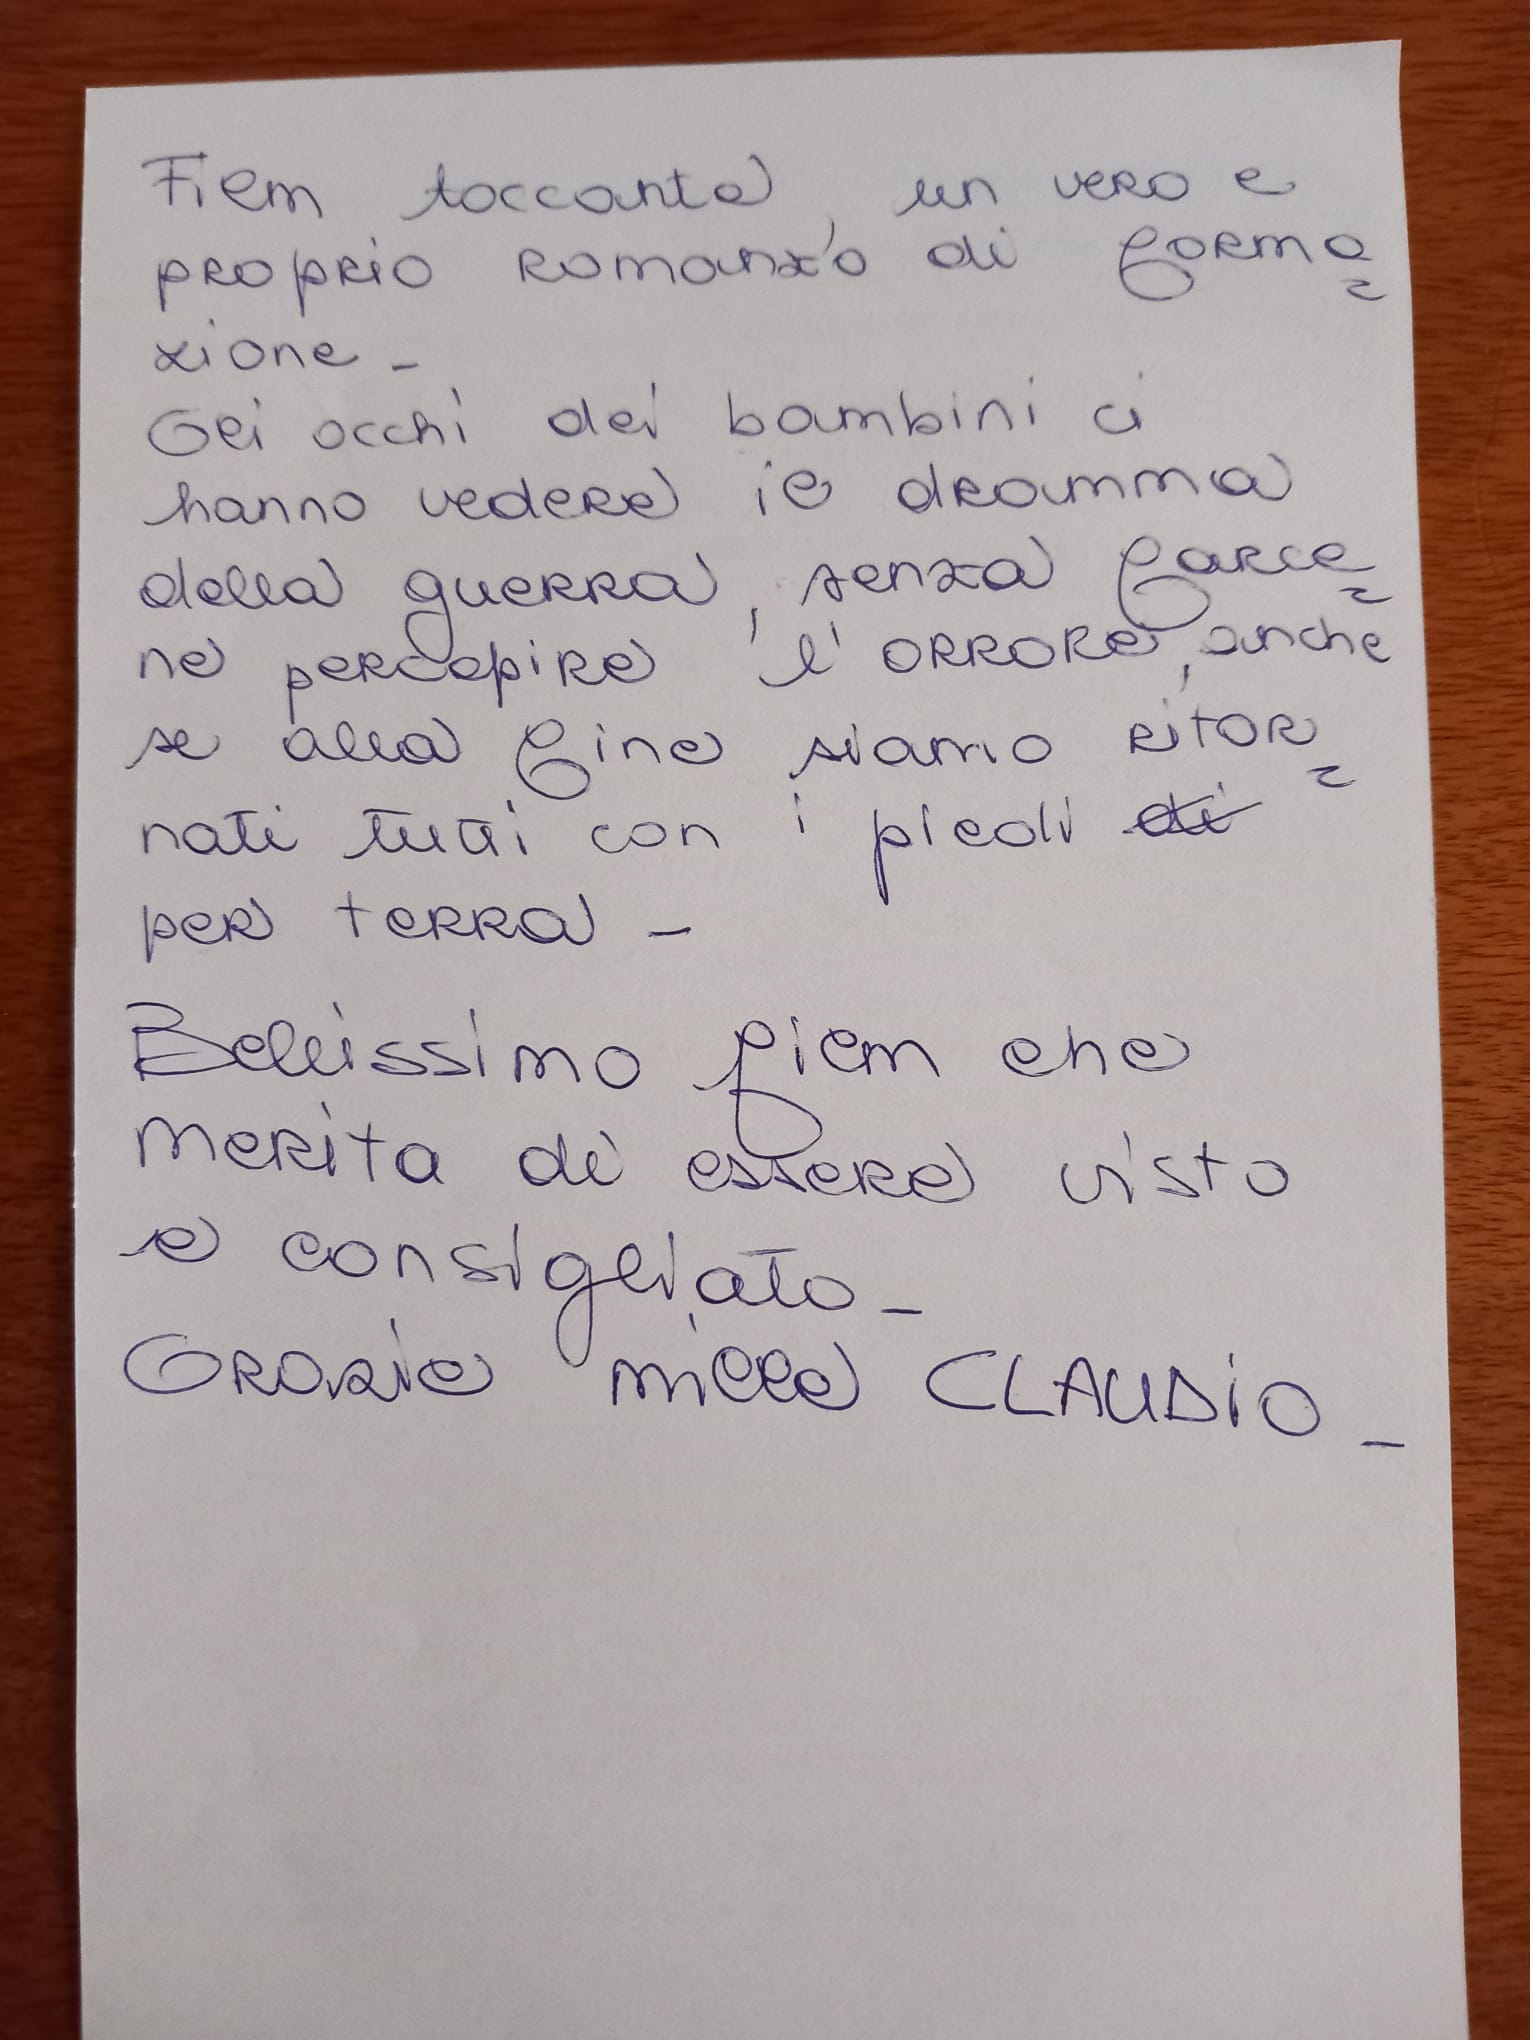 Film toccante, un vero e
proprio romanzo di forma=
zione -
Gli occhi dei bambini ci
hanno vedere il dramma
della guerra, senza farce=
ne percepire l'orrore, anche
se alla fine siamo ritor=
nati tutti con i piedi di
per terra -
Bellissimo film che
merita di essere visto
e consigliato -
Grazie mille CLAUDIO -